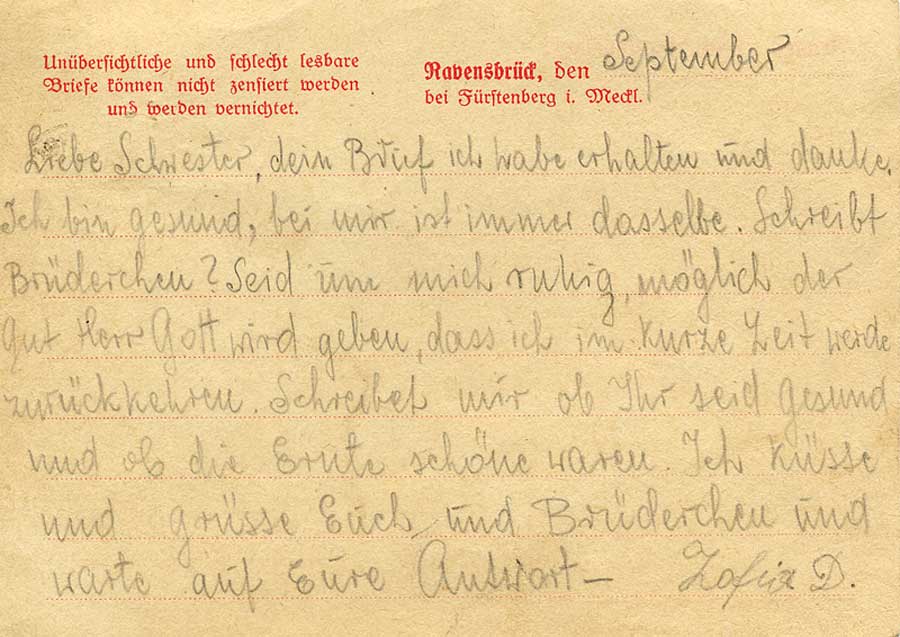 Unübersichtliche und schlecht lesbare
Briefe können nicht zensiert werden
und werden vernichtet.
Ravensbrück, den September
bei Fürstenberg i. Meckl.
Liebe Schwester, dein Brief ich habe erhalten und danke.
Ich bin gesund, bei mir ist immer dasselbe. Schreibt
Brüderchen? Seid um mich ruhig, möglich der
Gut Herr Gott wird geben, dass ich im kurze Zeit werde
zurückkehren. Schreibet mir ob Ihr seid gesund
und ob die Ernte schöne waren. Ich küsse
und grüsse Euch und Brüderchen und
warte auf Eure Antwort – Zofia D.